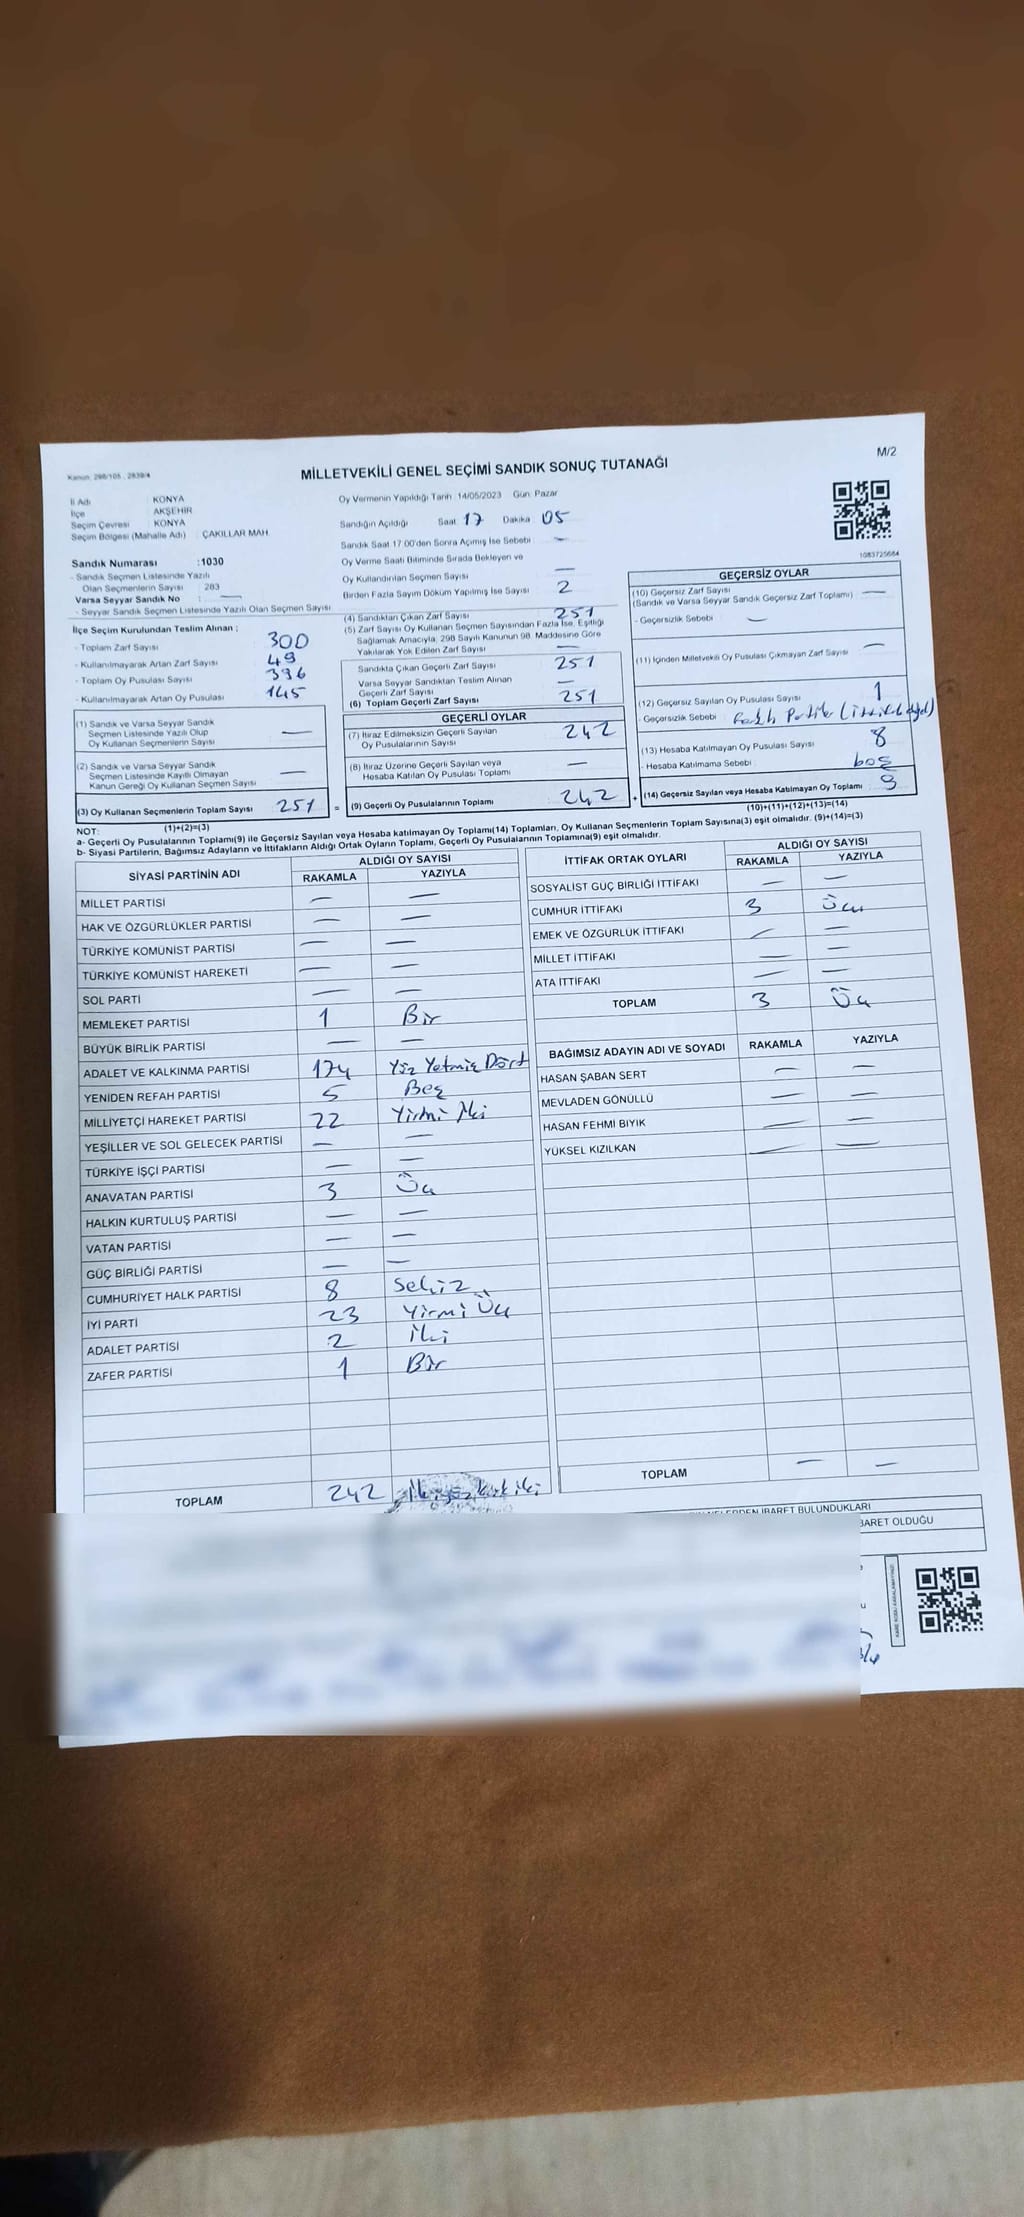 M/2
Kanun: 298/105 , 2839/4
MİLLETVEKİLİ GENEL SEÇİMİ SANDIK SONUÇ TUTANAĞI
İl Adı : KONYA
İlçe : AKŞEHİR
Seçim Çevresi : KONYA
Seçim Bölgesi (Mahalle Adı) : ÇAKILLAR MAH.
Sandık Numarası :1030
- Sandık Seçmen Listesinde Yazılı
Olan Seçmenlerin Sayısı : 283
Varsa Seyyar Sandık No : —
- Seyyar Sandık Seçmen Listesinde Yazılı Olan Seçmen Sayısı
İlçe Seçim Kurulundan Teslim Alınan ;
- Toplam Zarf Sayısı 300
- Kullanılmayarak Artan Zarf Sayısı 49
- Toplam Oy Pusulası Sayısı 396
- Kullanılmayarak Artan Oy Pusulası 145
(1) Sandık ve Varsa Seyyar Sandık
Seçmen Listesinde Yazılı Olup
Oy Kullanan Seçmenlerin Sayısı —
(2) Sandık ve Varsa Seyyar Sandık
Seçmen Listesinde Kayıtlı Olmayan
Kanun Gereği Oy Kullanan Seçmen Sayısı —
(3) Oy Kullanan Seçmenlerin Toplam Sayısı 251 =
(1)+(2)=(3)
Oy Vermenin Yapıldığı Tarih: 14/05/2023 Gün: Pazar
Sandığın Açıldığı Saat: 17 Dakika: 05
Sandık Saat 17:00'den Sonra Açımış İse Sebebi : —
Oy Verme Saati Bitiminde Sırada Bekleyen ve
Oy Kullandırılan Seçmen Sayısı —
Birden Fazla Sayım Döküm Yapılmış İse Sayısı 2
(4) Sandıktan Çıkan Zarf Sayısı 251
(5) Zarf Sayısı Oy Kullanan Seçmen Sayısından Fazla İse, Eşitliği
Sağlamak Amacıyla, 298 Sayılı Kanunun 98. Maddesine Göre
Yakılarak Yok Edilen Zarf Sayısı —
Sandıkta Çıkan Geçerli Zarf Sayısı 251
Varsa Seyyar Sandıktan Teslim Alınan
Geçerli Zarf Sayısı —
(6) Toplam Geçerli Zarf Sayısı 251
GEÇERLİ OYLAR
(7) İtiraz Edilmeksizin Geçerli Sayılan
Oy Pusulalarının Sayısı 242
(8) İtiraz Üzerine Geçerli Sayılan veya
Hesaba Katılan Oy Pusulası Toplamı —
(9) Geçerli Oy Pusulalarının Toplamı 242 +
1083725684
GEÇERSİZ OYLAR
(10) Geçersiz Zarf Sayısı
(Sandık ve Varsa Seyyar Sandık Geçersiz Zarf Toplamı) —
- Geçersizlik Sebebi : —
(11) İçinden Milletvekili Oy Pusulası Çıkmayan Zarf Sayısı —
(12) Geçersiz Sayılan Oy Pusulası Sayısı 1
- Geçersizlik Sebebi : Farklı Partiler (ittifak değil)
(13) Hesaba Katılmayan Oy Pusulası Sayısı 8
- Hesaba Katılmama Sebebi : boş
(14) Geçersiz Sayılan veya Hesaba Katılmayan Oy Toplamı 9
(10)+(11)+(12)+(13)=(14)
NOT:
a- Geçerli Oy Pusulalarının Toplamı(9) ile Geçersiz Sayılan veya Hesaba katılmayan Oy Toplamı(14) Toplamları, Oy Kullanan Seçmenlerin Toplam Sayısına(3) eşit olmalıdır. (9)+(14)=(3)
b- Siyasi Partilerin, Bağımsız Adayların ve İttifakların Aldığı Ortak Oyların Toplamı, Geçerli Oy Pusulalarının Toplamına(9) eşit olmalıdır.
SİYASİ PARTİNİN ADI ALDIĞI OY SAYISI
RAKAMLA YAZIYLA
MİLLET PARTİSİ — —
HAK VE ÖZGÜRLÜKLER PARTİSİ — —
TÜRKİYE KOMÜNİST PARTİSİ — —
TÜRKİYE KOMÜNİST HAREKETİ — —
SOL PARTİ — —
MEMLEKET PARTİSİ 1 Bir
BÜYÜK BİRLİK PARTİSİ — —
ADALET VE KALKINMA PARTİSİ 174 Yüz Yetmiş Dört
YENİDEN REFAH PARTİSİ 5 Beş
MİLLİYETÇİ HAREKET PARTİSİ 22 Yirmi İki
YEŞİLLER VE SOL GELECEK PARTİSİ — —
TÜRKİYE İŞÇİ PARTİSİ — —
ANAVATAN PARTİSİ 3 Üç
HALKIN KURTULUŞ PARTİSİ — —
VATAN PARTİSİ — —
GÜÇ BİRLİĞİ PARTİSİ — —
CUMHURİYET HALK PARTİSİ 8 Sekiz
İYİ PARTİ 23 Yirmi Üç
ADALET PARTİSİ 2 İki
ZAFER PARTİSİ 1 Bir
TOPLAM 242 İkiyüz kırk iki
İTTİFAK ORTAK OYLARI ALDIĞI OY SAYISI
RAKAMLA YAZIYLA
SOSYALİST GÜÇ BİRLİĞİ İTTİFAKI — —
CUMHUR İTTİFAKI 3 Üç
EMEK VE ÖZGÜRLÜK İTTİFAKI — —
MİLLET İTTİFAKI — —
ATA İTTİFAKI — —
TOPLAM 3 Üç
BAĞIMSIZ ADAYIN ADI VE SOYADI RAKAMLA YAZIYLA
HASAN ŞABAN SERT — —
MEVLADEN GÖNÜLLÜ — —
HASAN FEHMİ BIYIK — —
YÜKSEL KIZILKAN — —
TOPLAM — —
İBARET BULUNDUKLARI
OLDUĞU